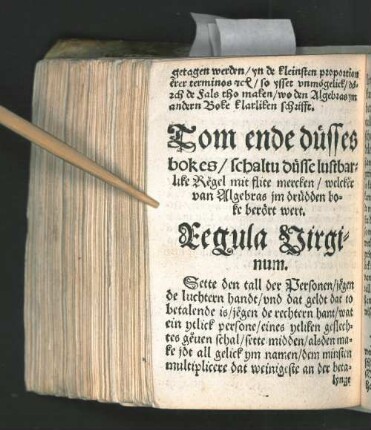 getagen werden/ yn de kleinsten proportion
erer terminos ꝛcʒ/ so ysset vnmögelick/
dorch de Fals tho maken/ wo den Algebras ym
andern Boke klarliken schrifft.
Tom ende düsses
bokes/ schaltu düsse lustbar-
like Regel mit flite mercken/ welcke
van Algebras jm drüdden bo-
ke berört wert.
Regula Virgi-
num.
Sette den tall der Personen/ jegen
de luchtern handt/ vnd dat geldt dat to
betalende is/ jegen de rechtern hant/ wat
ein ytlick persone/ eines ytliken geslech-
tes geuen schal/ sette midden/ alsden ma-
ke jdt all gelick ym namen/ dem minsten
multiplicere dat weinigeste an der beta-
lynge